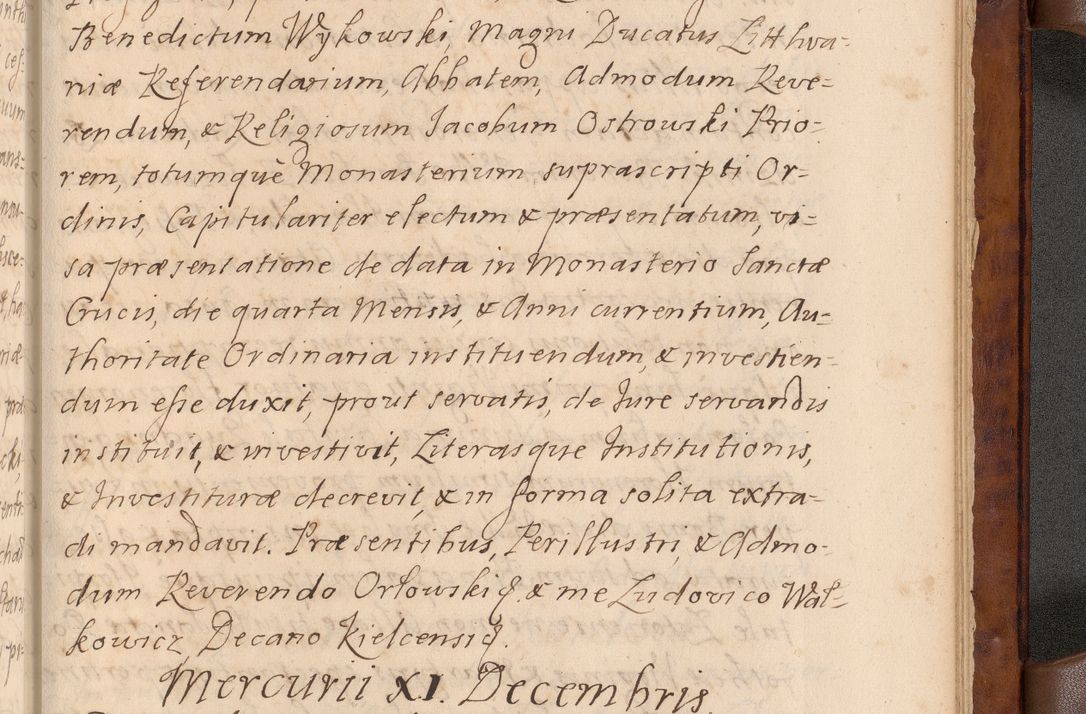 Benedictum Wykowski, Magni Ducatus Litthva-
niæ Referendarium, Abbatem, Admodum Reve=
rendum, & Religiosum Jacobum Ostrowski Prio=
rem, totumquè Monasterium suprascripti Or-
dinis, Capitulariter electum & præsentatum, vi=
sa præsentatione de data in Monasterio Sanctæ
Crucis, die quarta Mensis, & Anni currentium, Au=
thoritate Ordinaria instituendum, & investien-
dum esse duxit, prout servatis, de Jure servandis
instituit, & investivit, Literasque Institutionis,
& Investituræ decrevit, & in forma solita extra-
di mandavit. Præsentibus, Perillustri & Admo-
dum Reverendo Orłowski & me Ludovico Wal-
kowicz Decano Kielcensi
Mercurii XI. Decembris